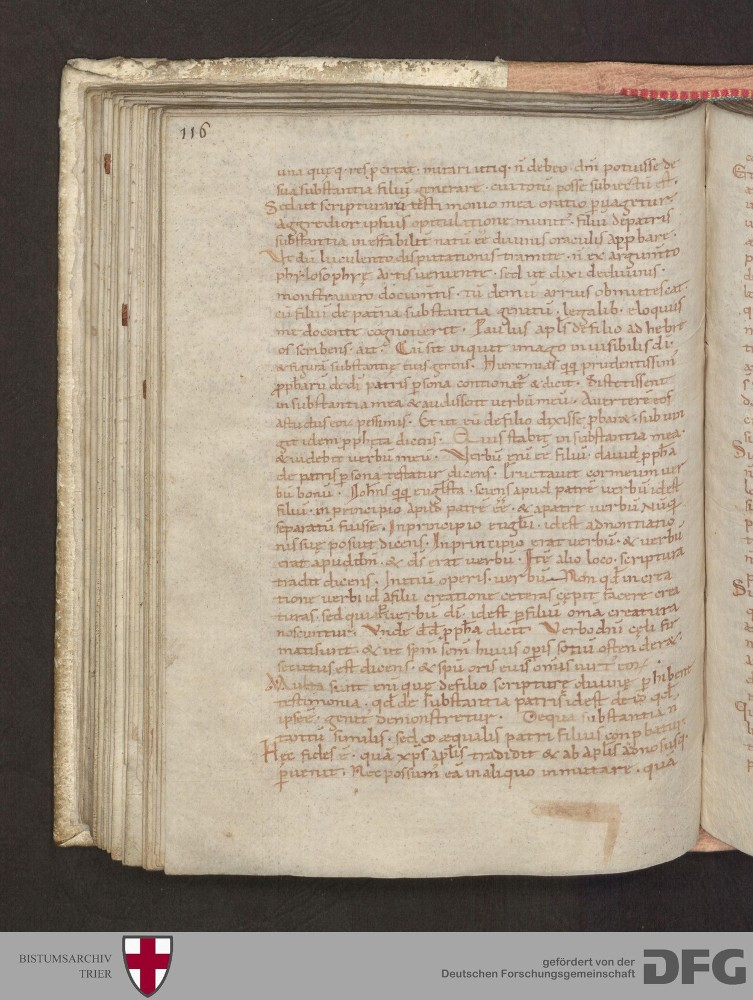 116
una quęq; res p̄ertat. mirari utiq; n̄ debeo dn̄m potuisse de
sua substantia filiū generare. cui totū posse subiectū est.
Sed ut scripturarū testimonio mea oratio pagetur
aggredior ipsius opitulatione munit. filiū de patris
substantia ineffabilit natū eē diuinis oraculis app bare.
Ut dū luculento disputationis tramite. n̄ ex argum̄to
phylosophyę artis ueniente. sed ut dixi de diuinis
monstrauero docum̄tis. tū demū arrius obmutescat.
cū filiū de patria substantia genitū. legalib; eloquiis
me docente cognouerit. Paulus apl̄s de filio ad hebre
os scribens. ait. Cū sit inquit imago inuisibilis dī.
& figura substantię eius gerens. Hieremias q̄q; prudentissim
p̄pharū de dī patris psona contionat̄ & dicit. Si stetissent
in substantia mea & audissent uerbū meū. Auerterē eos
a studiis pessimis. Et ut eū de filio dixisse p̄baret. subiun
git idem p̄pheta dicens. Quis stabit in substantia mea.
& uidebit uerbū meū. Verbū enī eē filiū. dauid p̄ph̄a
de patris psona testatur dicens. Eructauit cor meum uer
bū bonū. Joh̄s q̄q; eugl̄ista. sciens apud patrē uerbū id est
filiū. in principio apud patrē eē. & a patre uerbū nūq̄
separatū fuisse. In principio eugl̄ii. id est adnontiatio
nis suę posuit dicens. In principio erat uerbū. & uerbū
erat apud dm̄. & dš erat uerbū. Itē alio loco. scriptura
tradit dicens. Initiū operis uerbū. Non qd̄ in creta
tione uerbi id a filii creatione ceteras cępit facere crea
turas. sed quia p uerbū dī. id est p filiū om̄a creatura
noscuntur. Unde dd̄ p̄ph̄a dicit. Verbo dn̄i cęli fir
mati sunt. & ut sp̄m sc̄m huius opis sociū ostenderet.
secutus est dicens. & spū oris eius om̄is uirt eoꝝ.
Multa sunt enī quę de filio scripturę diuinę phibent
testimonia. qd̄ de substantia patris id est de eo qd̄
ipse ē. genit demonstretur. De qua substantia n̄
tantū similis. sed & coæqualis patri filius conp batur.
Hęc fides ē. quā xp̄s apl̄is tradidit & ab apl̄is ad nos usq;
puenit. Nec possum eā in aliquo inmutare. quā
BISTUMSARCHIV
TRIER
gefördert von der
Deutschen Forschungsgemeinschaft
DFG